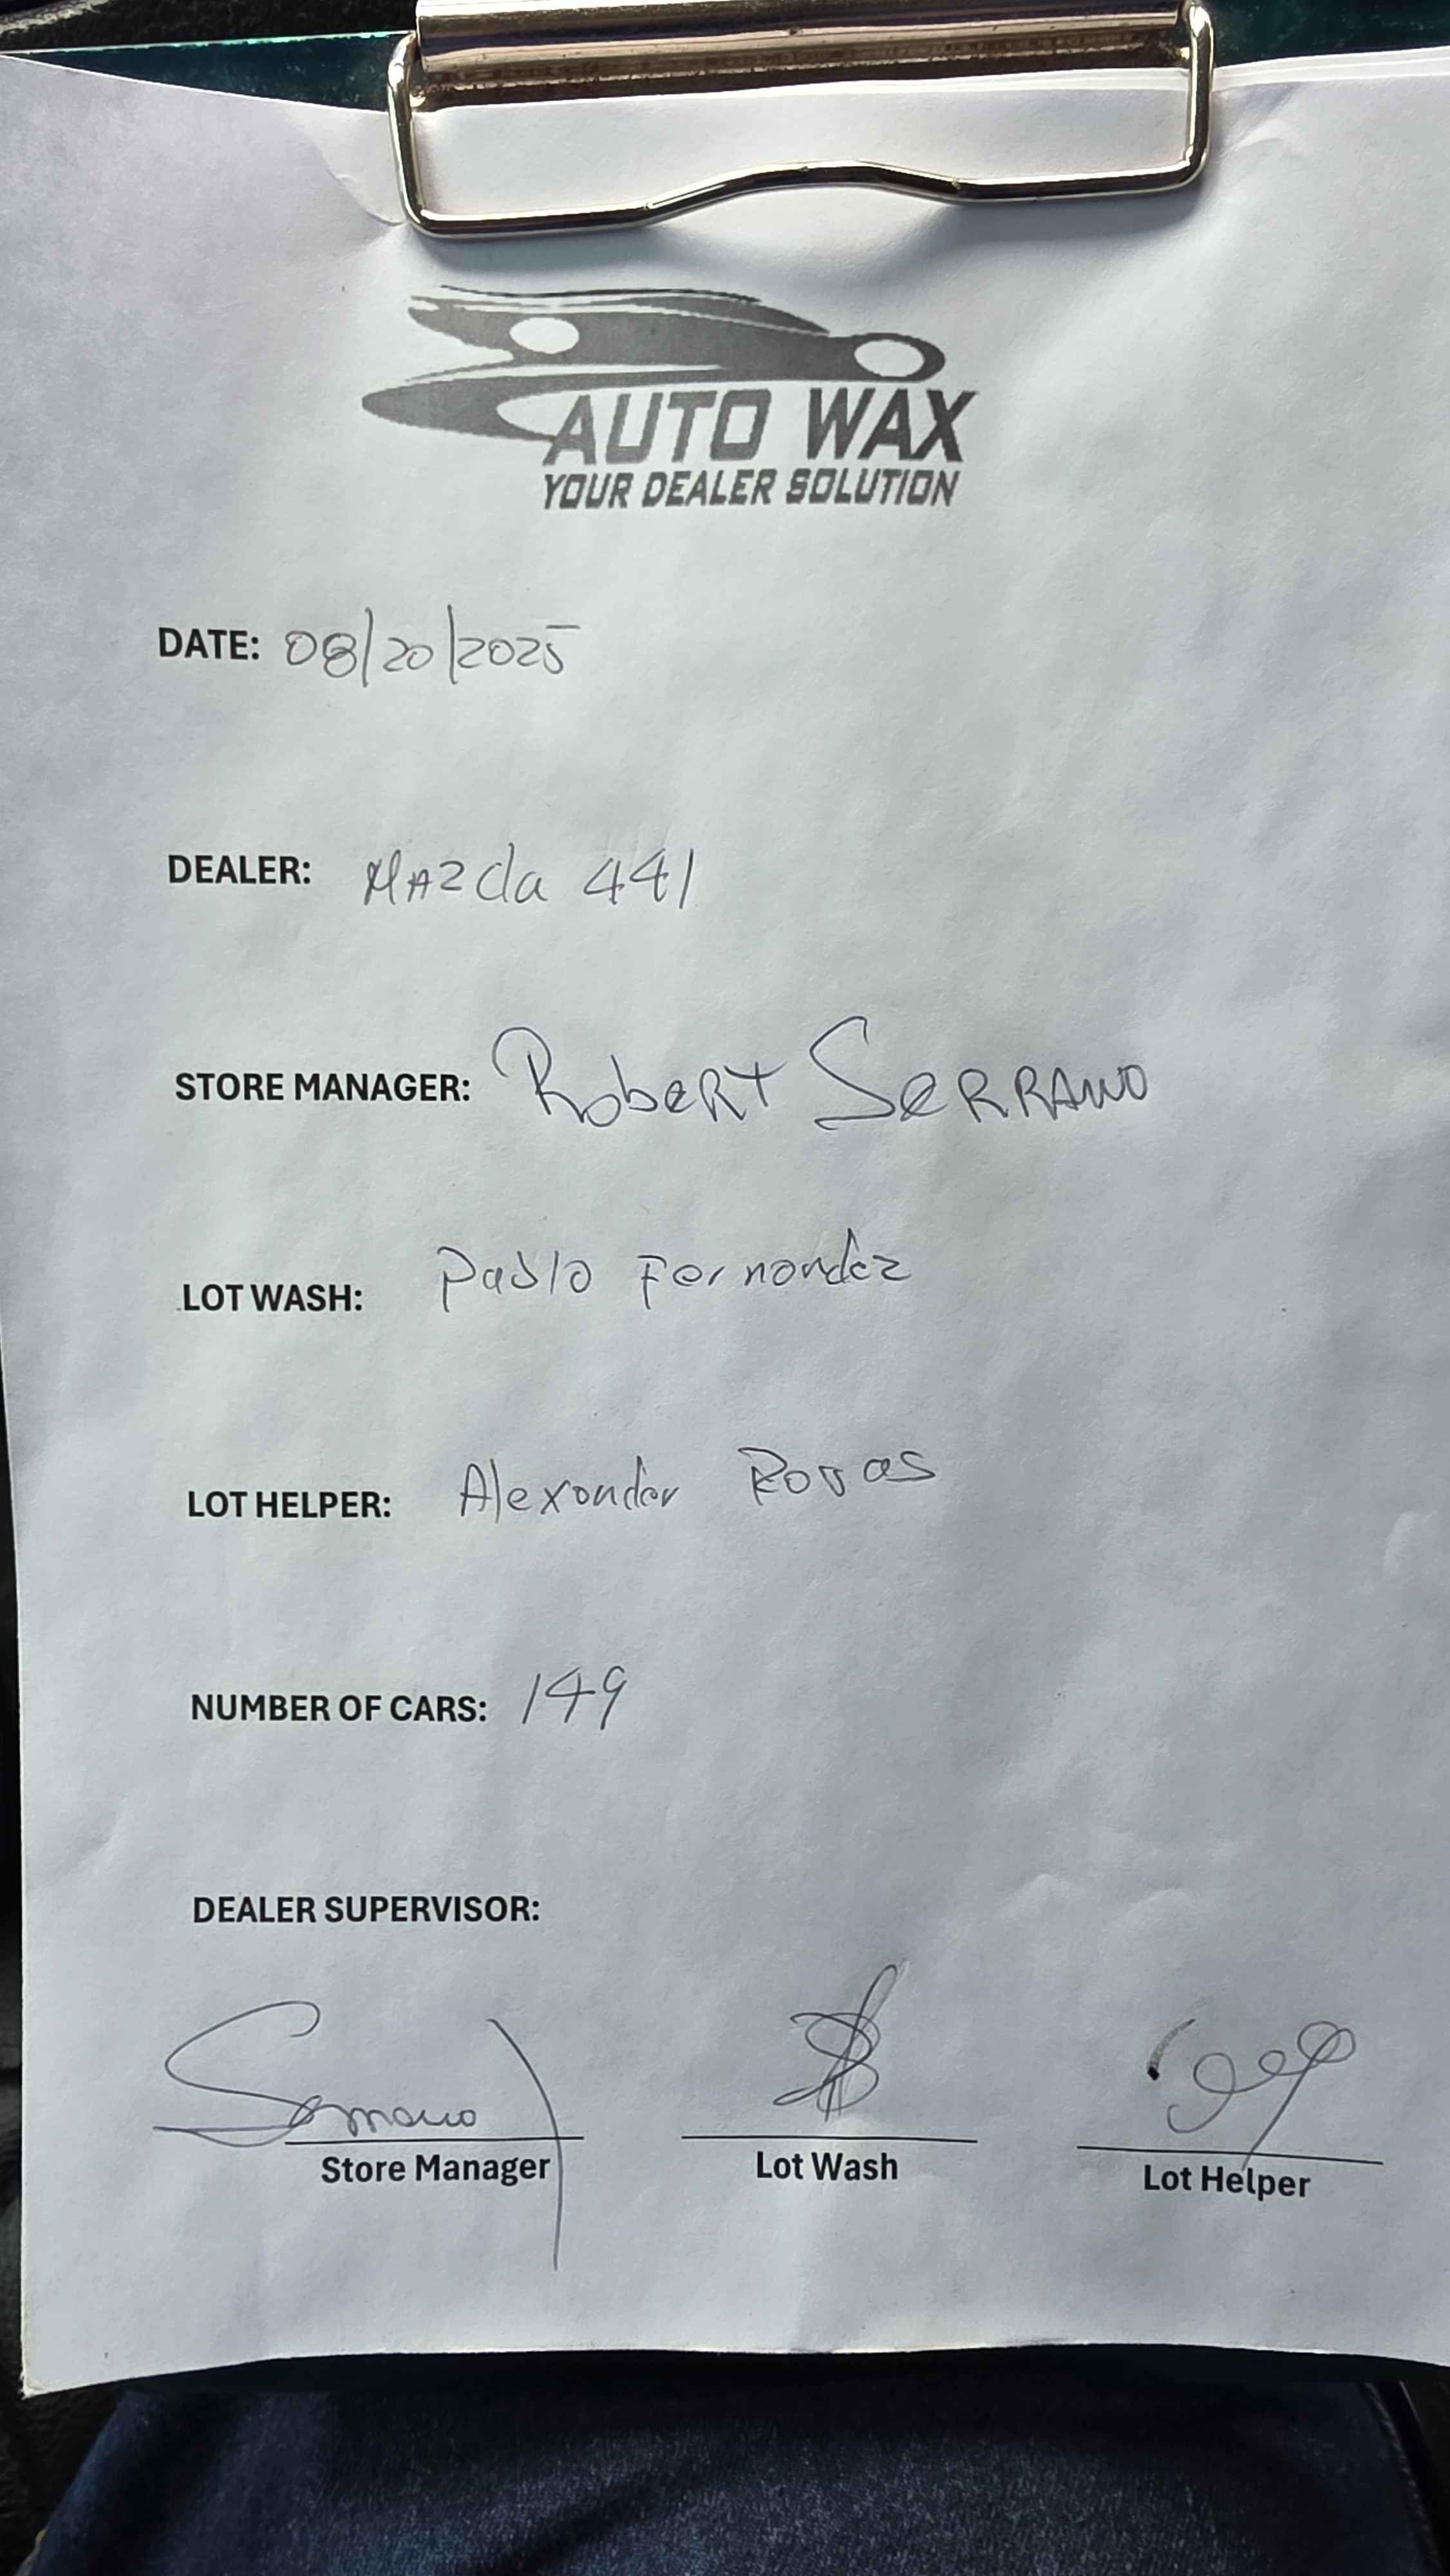 AUTO WAX
YOUR DEALER SOLUTION
DATE: 08/20/2025
DEALER: Mazda 441
STORE MANAGER: Robert Serrano
LOT WASH: Pablo Fernandez
LOT HELPER: Alexander
NUMBER OF CARS: 149
DEALER SUPERVISOR:
Store Manager Lot Wash Lot Helper